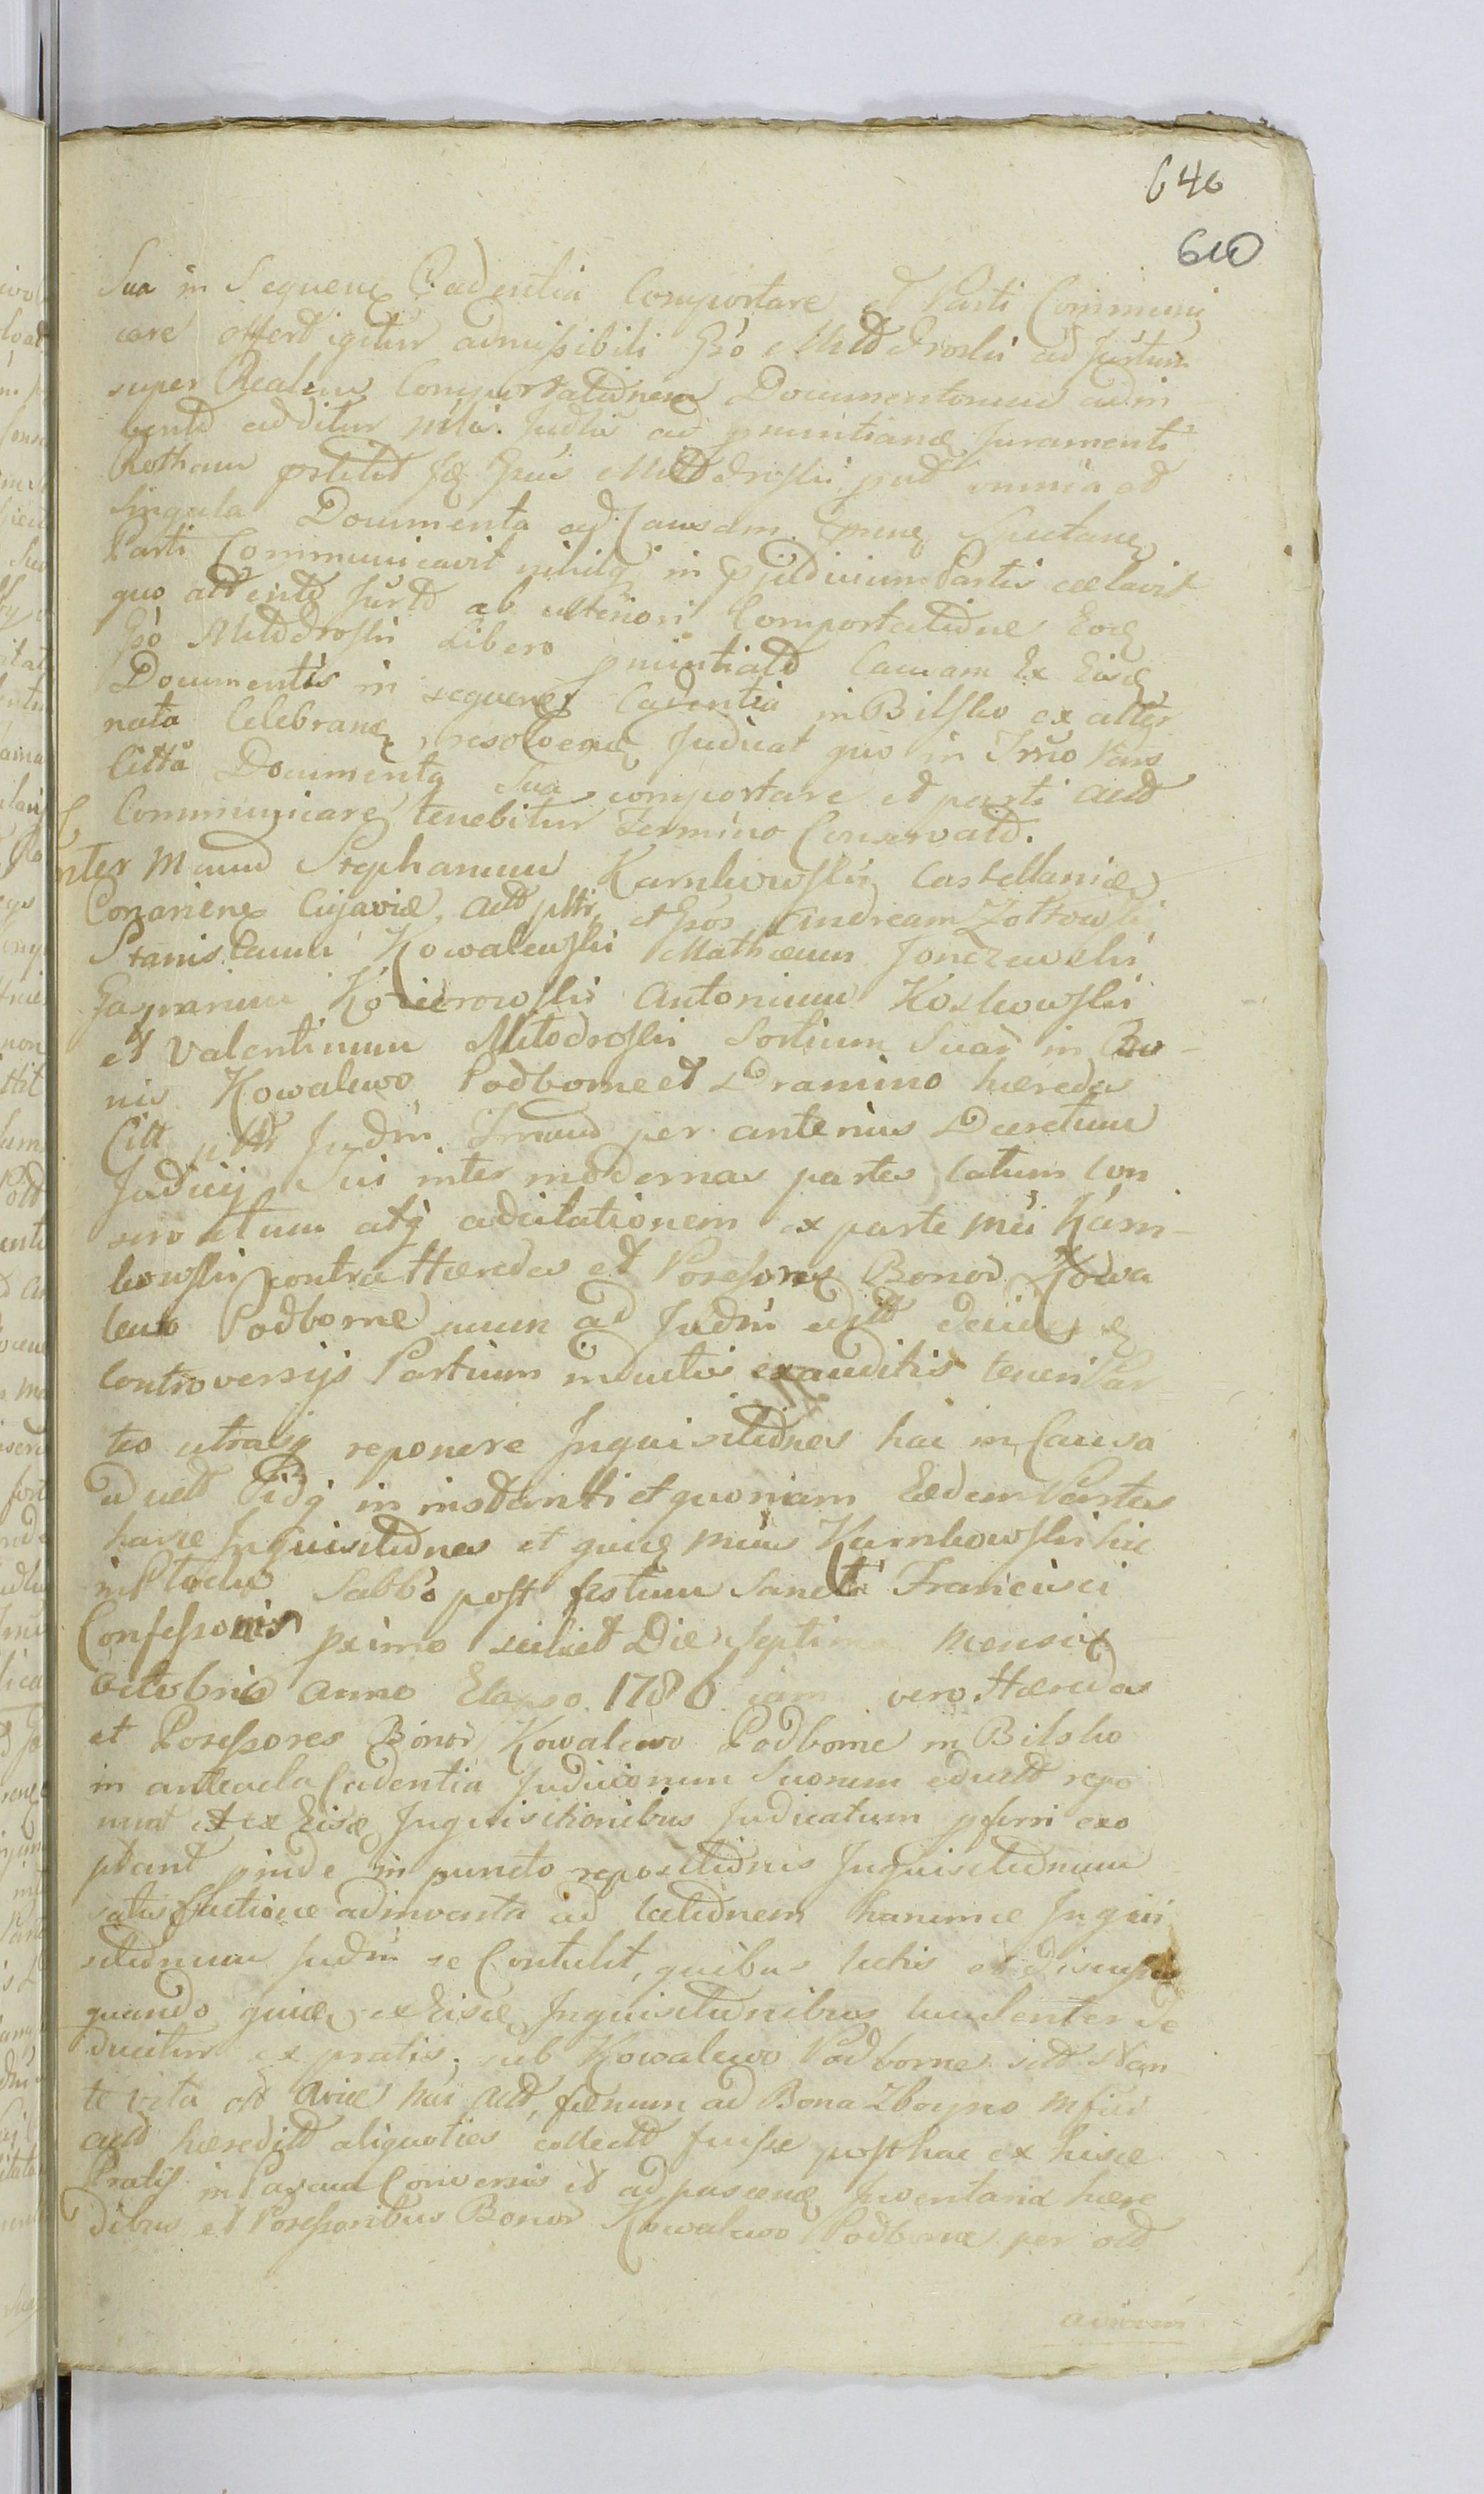 646
610
Sua in Sequenę Cadentia Comportare et Parti Communi
care offert igitur admissibili Gso Młtdroski ad Jurtum
super Realem Comportatidnem Documentorum adin
ventd additur nila. Judiu ad pnuntianę Juramenti
Rotham pstitit Gsus Młtdroski pud omnia et
Singula Documenta ad Causam Spectanę
Parti Communicavit nihilq in pjudicium Partis celavit
quo attentd Jurtd ab ulteriori Comportatidne Eodę
Gso Młtddroski Libero pnuntiatd Causam Ex Eisdę
Documentis in sequenę Cadentia in Bilsko ex alter
nata Celebranę, resolvenę Judicat quo in Trno Pars
Citta Documenta Sua comportare et parti actd
Communicare tenebitur Termino Conservatd.
nter Mcum Stephanum Karnkowski Castellanidę
Conariens Cujaviæ, actt pltr, et Gsos Andream Zołtowski
Stanislaum Kowalewski Mathæum Jonczewski
Gasparum Kozierowski Antonium Koskowski
et Valentinum Młtodroski Sortium Suar in Bo-
nis Kowalewo Podborne et Dramino hæredes
Citt pltr Judm Trnum per anterius Decretum
Judicij Sui inter modernas partes latum con
servatum atq adcitationem ex parte Mci Karn-
kowski contra Hæredes et Possesores Bonor Kowa
lewo Podborne nunc ad Judm
Controversijs Partium inductis exauditis teneri Par
tes utrasq reponere Inquisitidnes hac in Causa
eductd idq in instanti et quoniam Eædem Partes
hasce Inquisitidnes et quidę Mcus Karnkowski hic
in Płocko Sabbo post festum Sancti Francisci
Confessoris pximo scilicet Die Septima Mensis
Octobris Anno Elapso 1786 iam vero Hæredes
et Possessores Bonor Kowalewo Podborne in Bilsko
in anteacta Cadentia Judiciorum Suorum eductd repo
nunt et ex Eisdę Inquisitionibus Judicatum pferri exo
ptant pinde in puncto repositidnis Inquisitidnum
satisfactione adinventa ad lectidnem harumce Inqui
sitidnum Judm se Contulit, quibus lectis et discussis
quando quidę ex Eisdę Inquisitidnibus luculenter de
ducitur ex pratis sub Kowalewo Podborne sitd stan
te vita Aviæ Mci Actd, fænum ad Bona Zboyno
actd hæreditd aliquoties collectd fuisse posthac ex hisce
Pratis in Pascua Conversis et ad pascenę Inventaria hære
dibus et Possessoribus Bonor Kowalewo Podborne per